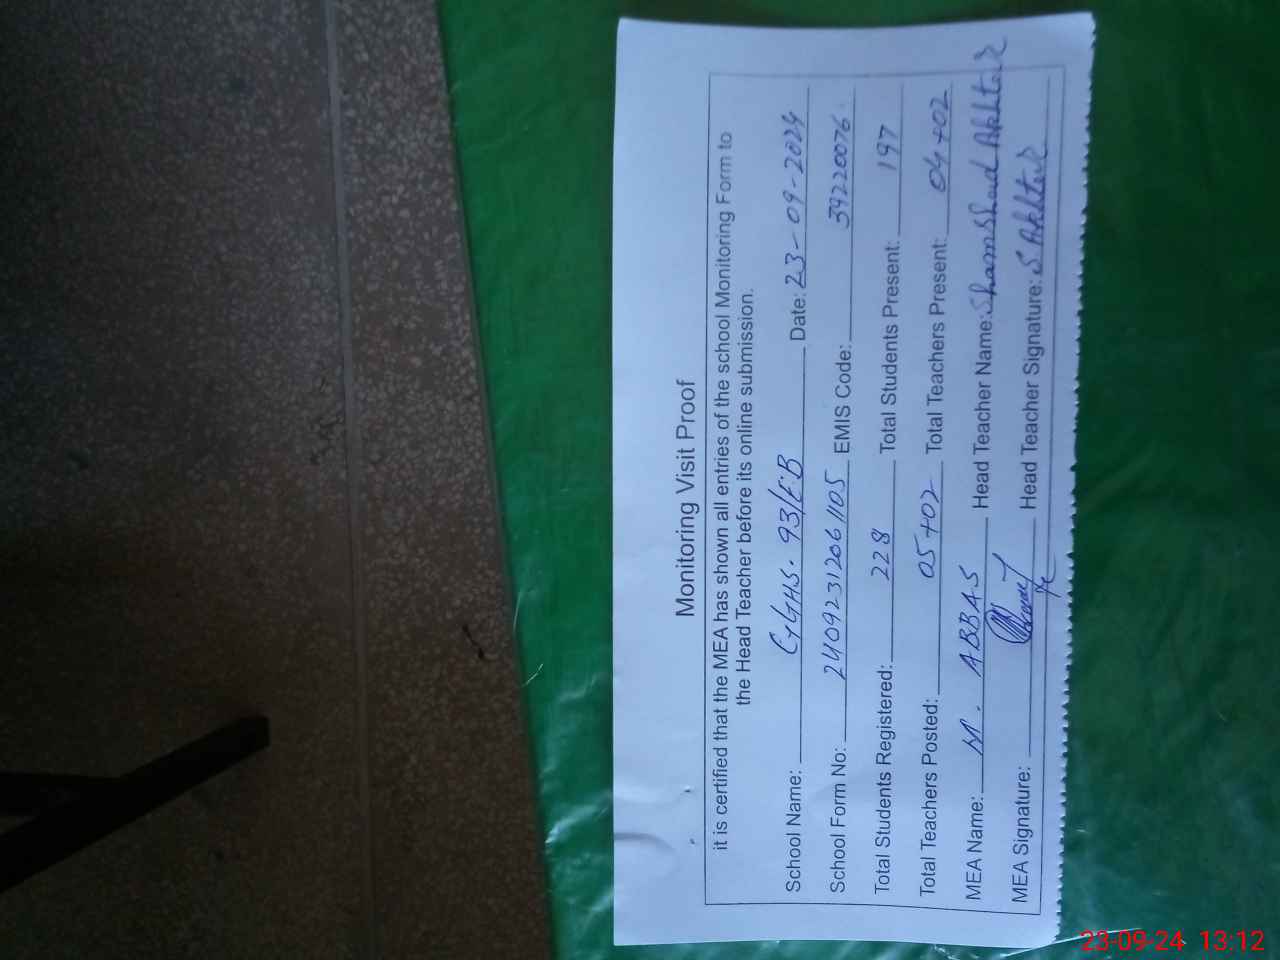 Monitoring Visit Proof
it is certified that the MEA has shown all entries of the school Monitoring Form to
the Head Teacher before its online submission.
School Name: GGHS. 93/E.B Date: 23-09-2024
School Form No: 24092312061105 EMIS Code: 39220076.
Total Students Registered: 228 Total Students Present: 197
Total Teachers Posted: 05+02 Total Teachers Present: 04+02
MEA Name: M. ABBAS Head Teacher Name: Shamshad Akhtar
MEA Signature: Head Teacher Signature: S Akhtar
23-09-24 13:12